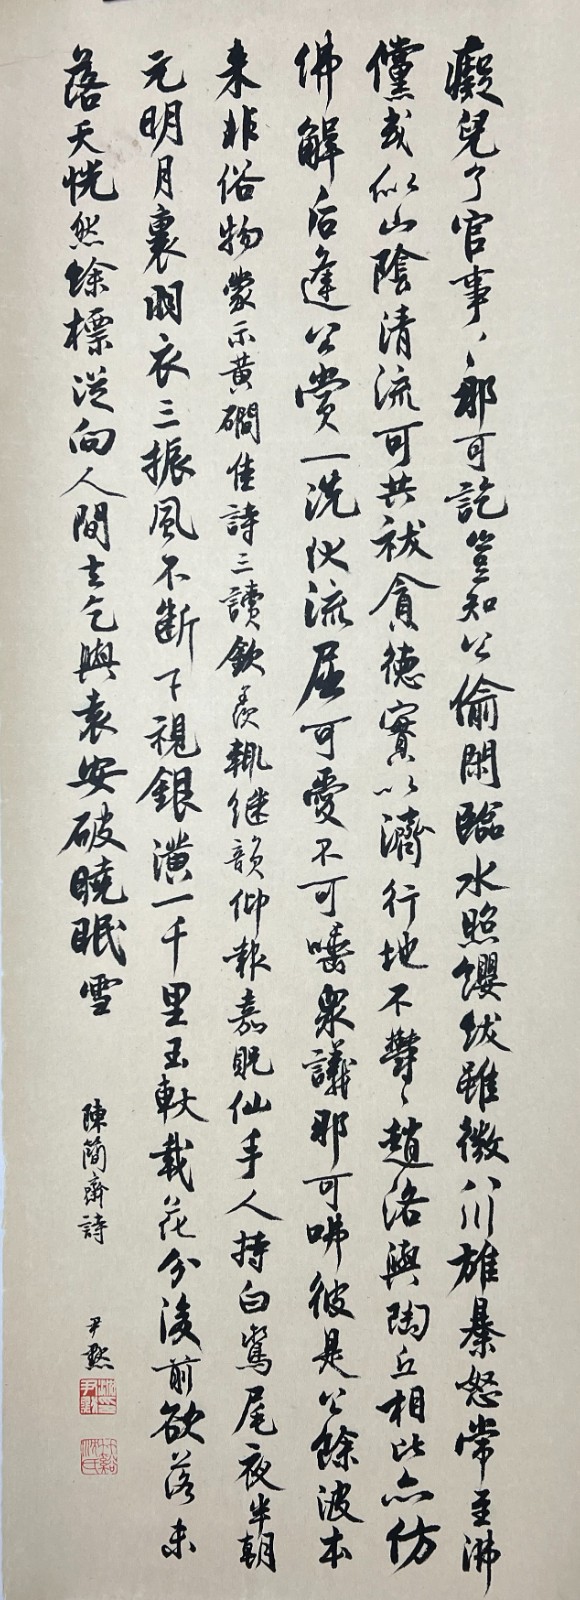 癡兒了官事〻那可訖豈知公偷閑臨水照纓紱雖微八川雄暴怒常至沸
儻或似山陰清流可共祓貪德實以濟行地不鬱〻趙洛與陶丘相比亦仿
佛解后逢公賞一洗伏流屈可愛不可眾議那可咈彼是公餘波本
來非俗物蒙示黃磵佳詩三讀欽羨輒継韻仰報嘉貺仙手人持白鸞尾夜半朝
元明月裏羽衣三振風不斷下視銀潢一千里玉軑載花分後前欲落未
落天恍然餘標從向人間去乞與袁安破曉眠雪
陳簡齋詩
尹默
竹谿沈氏